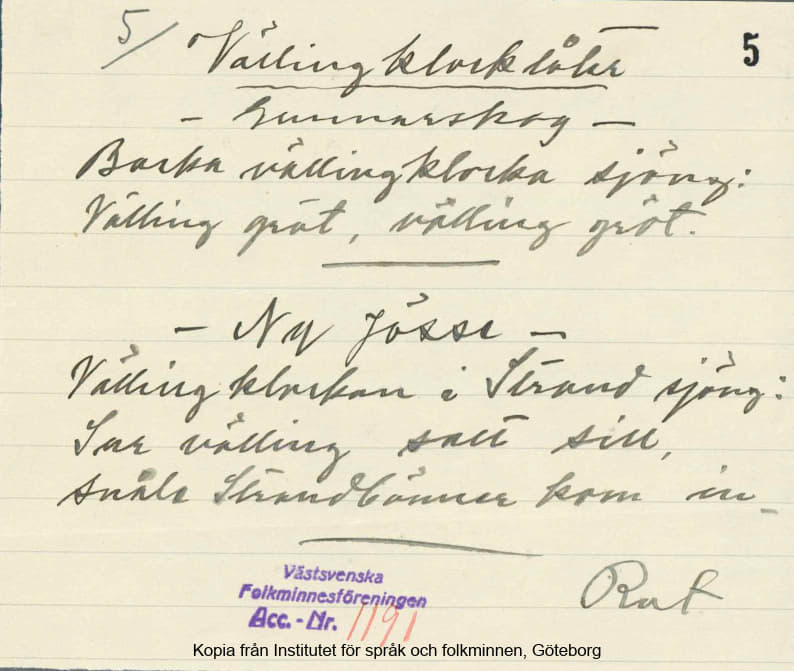 5/ Vällingklocklåtar 5
- Gunnarskog -
Borka vällingklocka sjöng:
Välling gröt, välling gröt.
- Ny Jösse -
Vällingklockan i Strand sjöng:
Sur välling salt sill,
snåle Strandbönner kom in
Västsvenska
Folkminnesföreningen
Acc. - Nr. 1191
Kopia från Institutet för språk och folkminnen, Göteborg